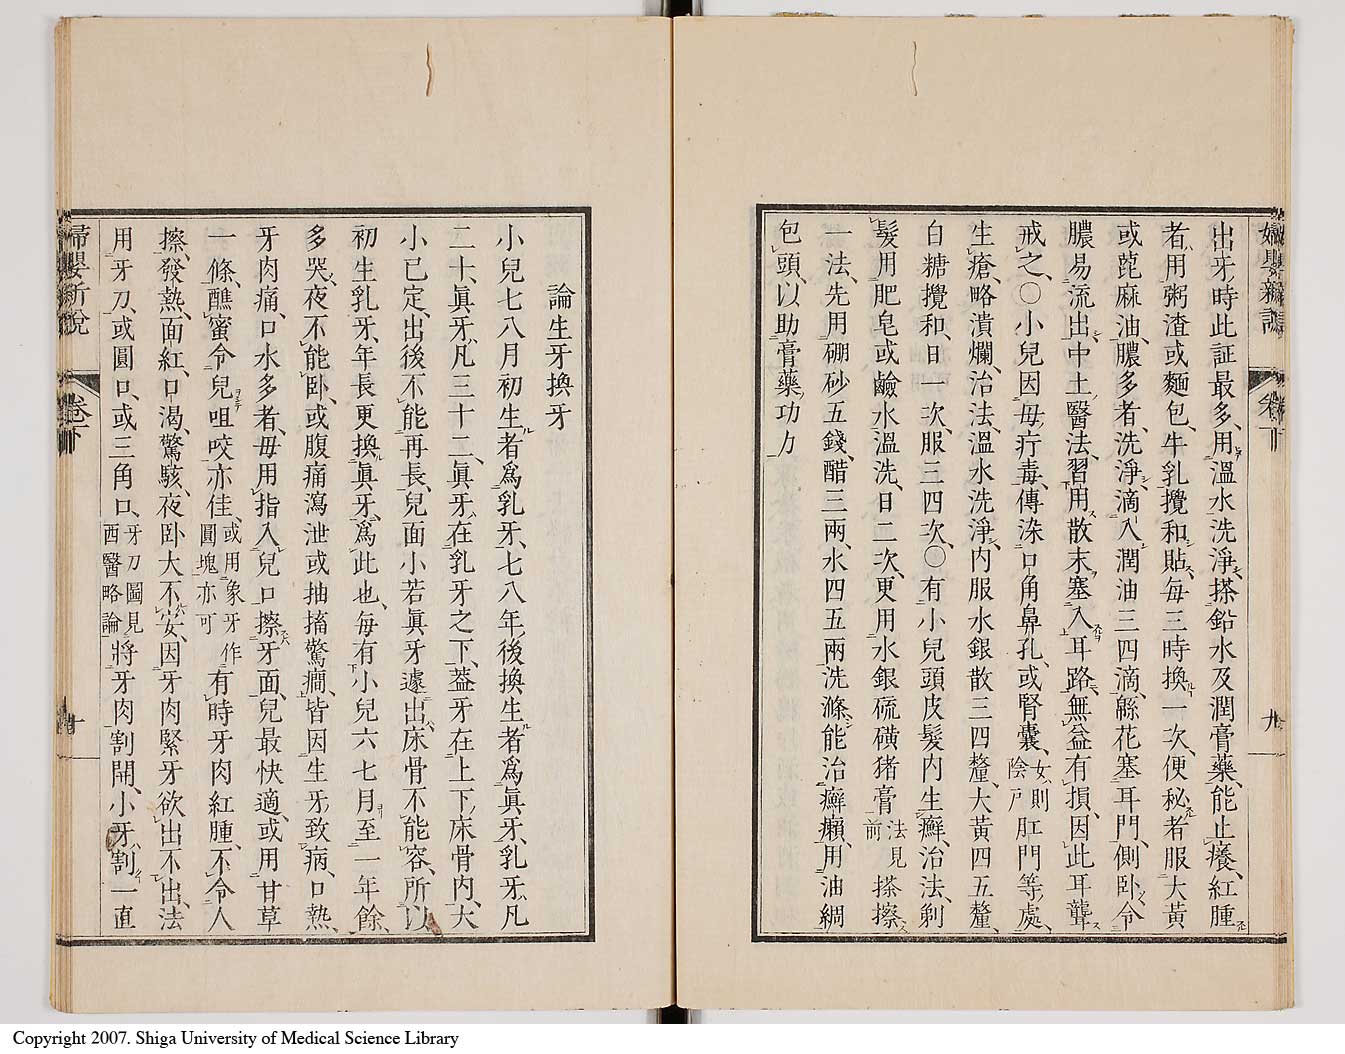 婦嬰新説
卷下
九
出牙時此証最多、用溫水洗淨搽鉛水及潤膏藥、能止癢、紅腫
者、用粥渣或麵包、牛乳攪和貼、每三時換一次、便秘者服大黃
或蓖麻油、膿多者、洗淨滴入潤油三四滴、緜花塞耳門、側臥令
膿易流出、中土醫法、習用散末塞入耳路、無益有損、因此耳聾
戒之、〇小兒因毋疔毒、傳染口角鼻孔、或腎囊、女則陰戶肛門等處、
生瘡、略潰爛、治法、溫水洗淨、內服水銀散三四釐、大黃四五釐、
白糖攪和、日一次、服三四次、〇有小兒頭皮髮內生癬、治法、剃
髮用肥皂或鹼水溫洗、日二次、更用水銀硫磺猪膏法見前搽擦
一法、先用硼砂五錢、醋三兩、水四五兩洗滌、能治癬癩、用油綢
包頭、以助膏藥功力
論生牙換牙
小兒七八月初生者爲乳牙、七八年後換生者爲眞牙、乳牙凡
二十、眞牙凡三十二、眞牙在乳牙之下、葢牙在上下床骨內、大
小已定、出後不能再長、兒面小若眞牙遽出、床骨不能容、所以
初生乳牙、年長更換眞牙、爲此也、每有小兒六七月至一年餘、
多哭、夜不能臥、或腹痛瀉泄或抽搐驚癇、皆因生牙致病、口熱、
牙肉痛、口水多者、毋用指入兒口擦牙面、兒最快適、或用甘草
一條、醮蜜令兒咀咬亦佳、或用象牙作圓塊亦可有時牙肉紅腫、不令人
擦、發熱、面紅、口渴、驚駭、夜臥大不安、因牙肉緊牙欲出不出、法
用牙刀、或圓口、或三角口、牙刀圖見西醫略論將牙肉割開、小牙割一直
婦嬰新説
卷下
十
Copyright 2007. Shiga University of Medical Science Library